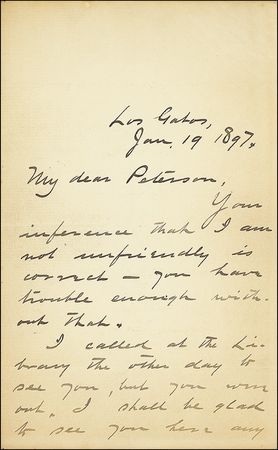 Los Gatos,
Jan. 19 1897.
My dear Peterson,
Your
inference that I am
not unfriendly is
correct — you have
trouble enough with-
out that.
I called at the Li-
brary the other day to
see you, but you were
out. I shall be glad
to see you here any